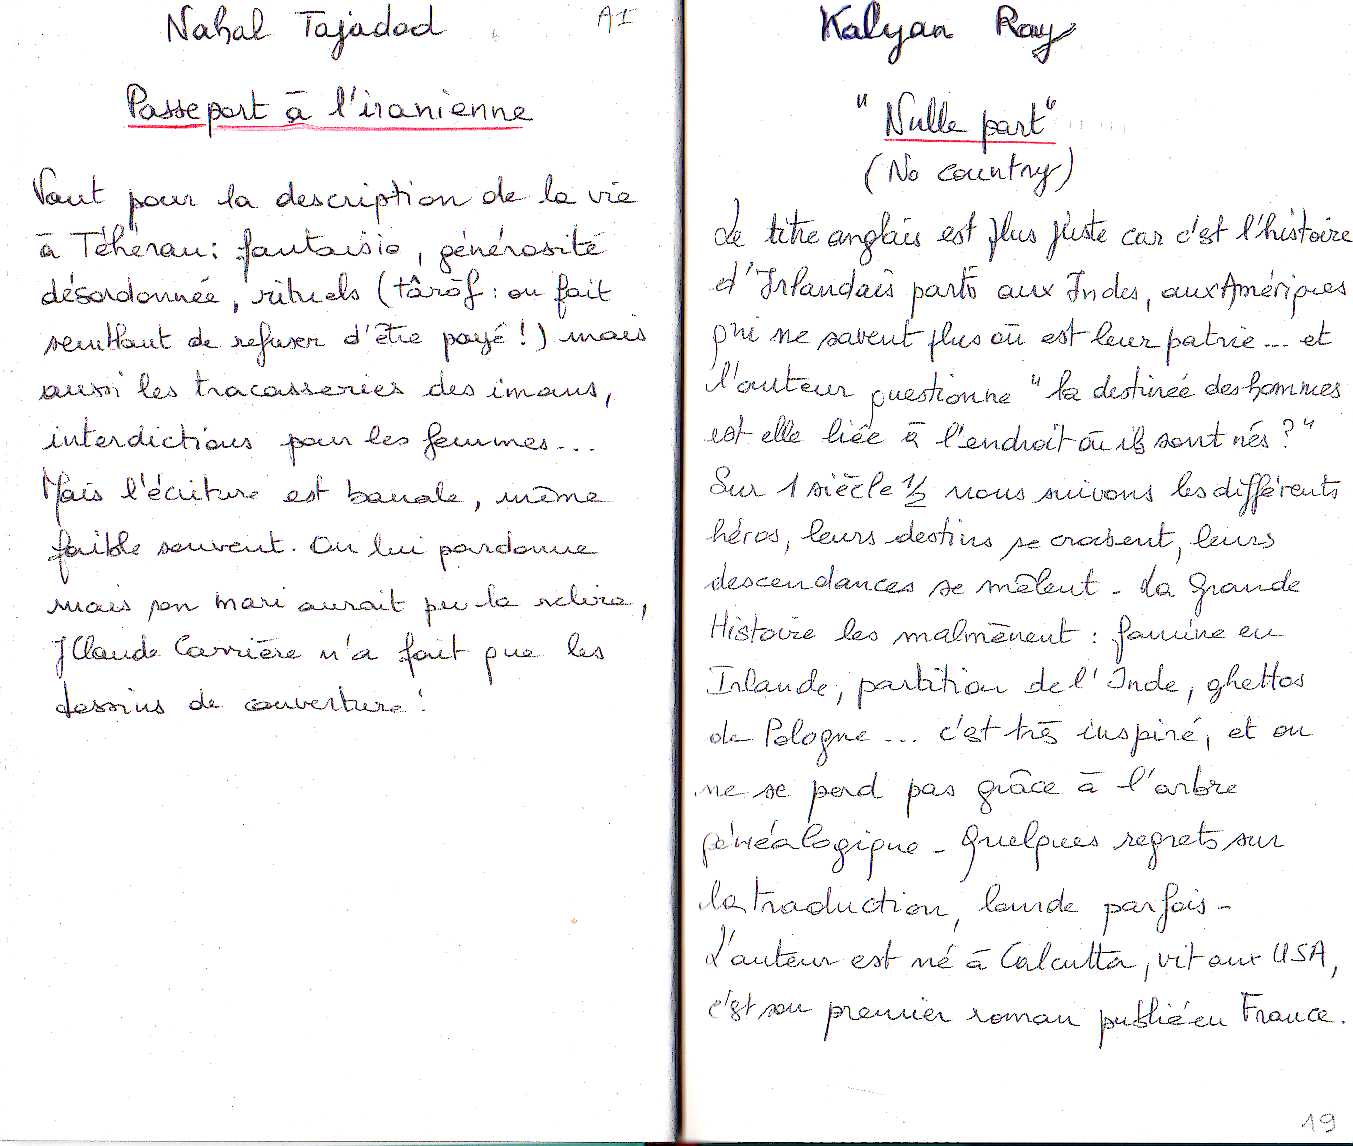 Nahal Tajadod
AI
Passeport à l'iranienne
Vaut pour la description de la vie
à Téhéran : fantaisie, générosité
désordonnée, rituels (târof : on fait
semblant de refuser d'être payé !) mais
aussi les tracasseries des imans,
interdictions pour les femmes...
Mais l'écriture est banale, même
faible souvent. On lui pardonne
mais son mari aurait pu la relire,
JClaude Carrière n'a fait que les
dessins de couverture !
Kalyan Ray
"Nulle part"
(No country)
Le titre anglais est plus juste car c'est l'histoire
d'Irlandais partis aux Indes, aux Amériques
qui ne savent plus où est leur patrie... et
l'auteur questionne "la destinée des hommes
est elle liée à l'endroit où ils sont nés ?"
Sur 1 siècle 1/2 nous suivons les différents
héros, leurs destins se croisent, leurs
descendances se mêlent - La Grande
Histoire les malmènent : famine en
Irlande, partition de l'Inde, ghettos
de Pologne... c'est très inspiré, et on
ne se perd pas grâce à l'arbre
généalogique - Quelques regrets sur
la traduction, lourde parfois -
L'auteur est né à Calcutta, vit aux USA,
c'est son premier roman publié en France.
19